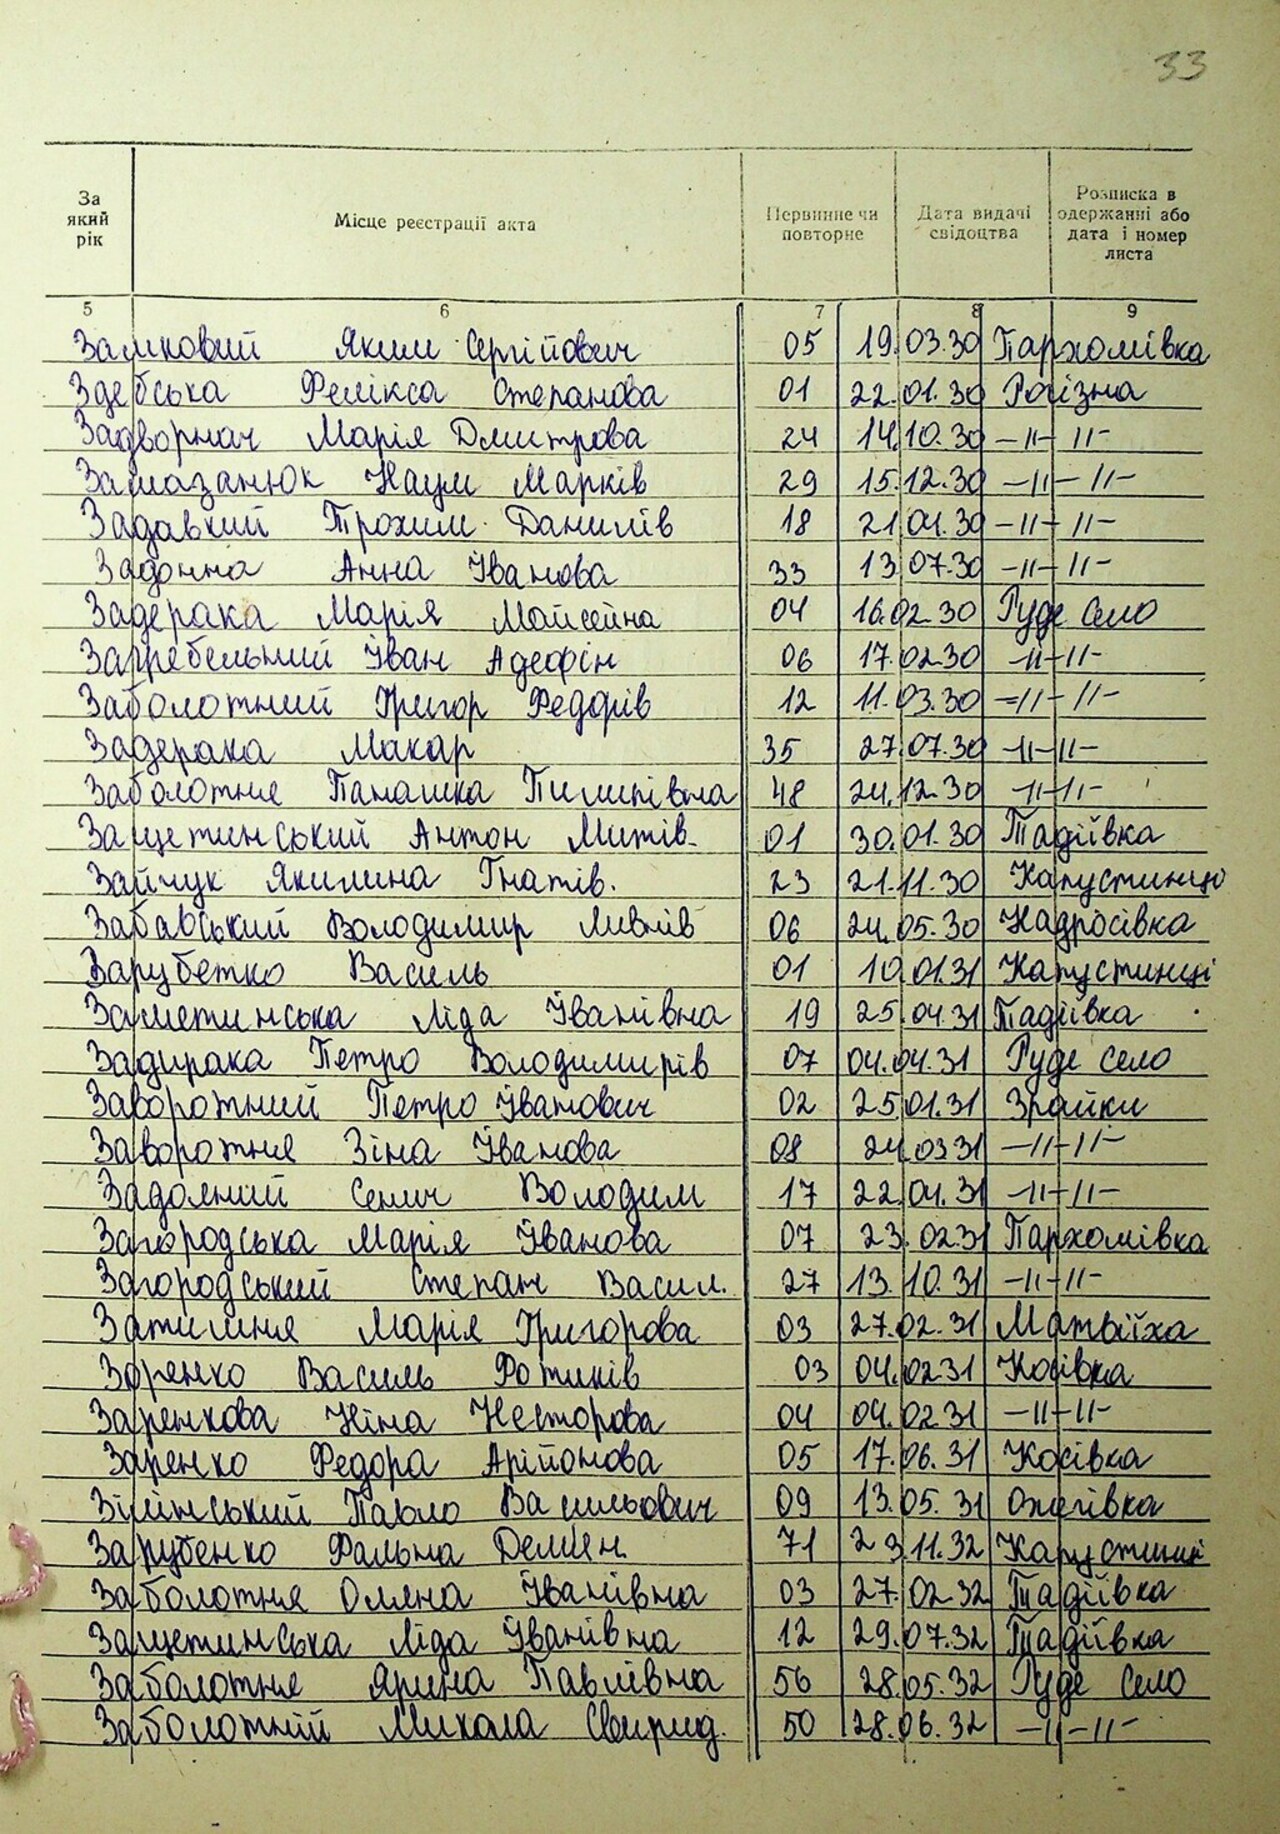 33
За який рік | Місце реєстрації акта | Первинне чи повторне | Дата видачі свідоцтва | Розписка в одержанні або дата і номер листа
5 6 7 8 9
Замковий Яким Сергійович 05 19.03.30 Пархомівка
Здебська Фелікса Степанова 01 22.01.30 Рогізна
Задворнач Марія Дмитрова 24 14.10.30 -〃- 〃-
Замазанюк Наум Марків 29 15.12.30 -〃- 〃-
Задавкий Трохим Данилів 18 21.04.30 -〃- 〃-
Задонна Анна Іванова 33 13.07.30 -〃- 〃-
Задерака Марія Мойсейна 04 16.02.30 Руде Село
Загребельний Іван Адефін 06 17.02.30 -〃-〃-
Заболотний Григор Федорів 12 11.03.30 -〃- 〃-
Задерака Макар 35 27.07.30 -〃-〃-
Заболотня Панашка Пилипівна 48 24.12.30 -〃-〃-
Защетинський Антон Митів. 01 30.01.30 Тадіївка
Зайчук Якилина Гнатів. 23 21.11.30 Капустинці
Забавський Володимир 06 24.05.30 Надросівка
Зарубетко Василь 01 10.01.31 Капустинці
Заметинська Ліда Іванівна 19 25.04.31 Тадіївка
Задирака Петро Володимирів 07 04.04.31 Руде Село
Заворотний Петро Іванович 02 25.01.31 Зрайки
Заворотня Зіна Іванова 08 24.03.31 -〃-〃-
Задолний Володим 17 22.04.31 -〃-〃-
Загородська Марія Іванова 07 23.02.31 Пархомівка
Загородський Степан Васил. 27 13.10.31 -〃-〃-
Затишня Марія Григорова 03 27.02.31 Матвіїха
Заренко Василь Фотиків 03 04.02.31 Косівка
Заренкова Ніна Несторова 04 04.02.31 -〃-〃-
Заренко Федора Арійонова 05 17.06.31 Косівка
Зілінський Павло Васильович 09 13.05.31 Ожегівка
Зарубенко Демієн. 71 23.11.32 Капустинці
Заболотня Оляна Іванівна 03 27.02.32 Тадіївка
Защетинська Ліда Іванівна 12 29.07.32 Тадіївка
Заболотня Ярина Павлівна 56 28.05.32 Руде Село
Заболотній Микола Свирид. 50 28.06.32 -〃-〃-